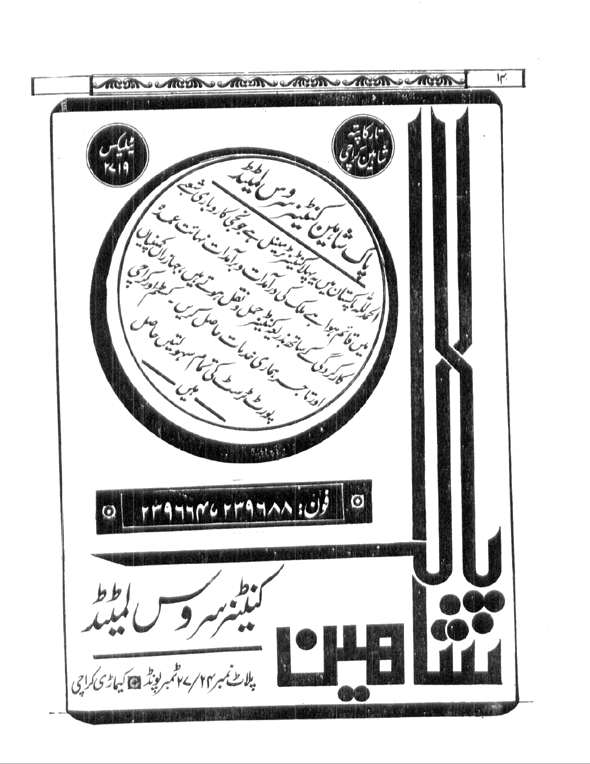 ۱۳
تار کا پتہ
شاہین کراچی
ٹیلیکس
۲۷۱۹
پاک شاہین کنٹینر سروس لمیٹڈ
الحمدللہ پاکستان میں یہ پہلا کنٹینر ٹرمینل ہے جو نجی کاروباری شعبے
میں قائم ہوا ہے ملک کی درآمدات برآمدات نہایت عمدہ
کارکردگی کے ساتھ بذریعہ کنٹینر حمل و نقل ہوتے ہیں، جہازراں کمپنیاں
اور تاجر ہماری خدمات حاصل کریں۔ کسٹم اور کراچی
پورٹ ٹرسٹ کی تمام سہولتیں حاصل
ہیں
فون: ۲۳۹۶۸۸ تا ۲۳۹۶۶۴
پاک
شاہین
کنٹینر سروس لمیٹڈ
پلاٹ نمبر ۲۷/۲۴ ٹمبر پونڈ کیماڑی کراچی